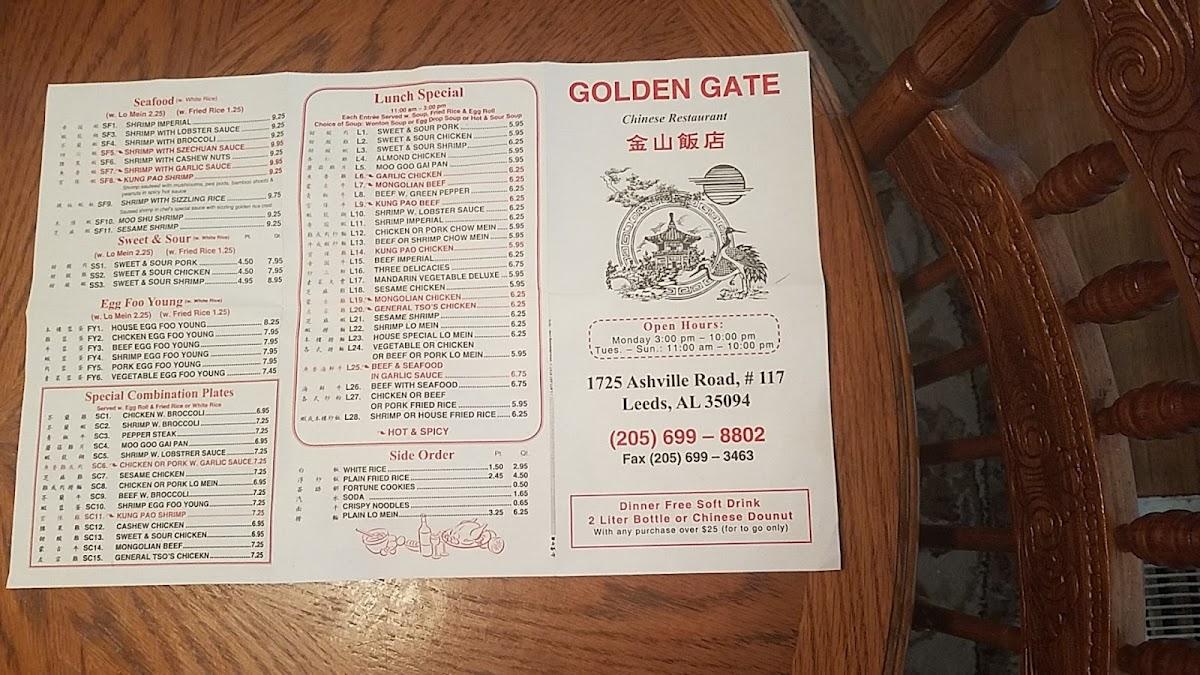 Seafood (w. White Rice)
(w. Lo Mein 2.25) (w. Fried Rice 1.25)
SF1. SHRIMP IMPERIAL 9.25
SF3. SHRIMP WITH LOBSTER SAUCE 9.25
SF4. SHRIMP WITH BROCCOLI 9.25
SF5. SHRIMP WITH SZECHUAN SAUCE 9.95
SF6. SHRIMP WITH CASHEW NUTS 9.25
SF7. SHRIMP WITH GARLIC SAUCE 9.95
SF8. KUNG PAO SHRIMP 9.25
Shrimp sauteed with mushrooms, pea pods, bamboo shoots &
peanuts in spicy hot sauce
SF9. SHRIMP WITH SIZZLING RICE 9.75
Sauteed shrimp in chef's special sauce with sizzling golden rice crust
SF10. MOO SHU SHRIMP 9.25
SF11. SESAME SHRIMP 9.25
Sweet & Sour (w. White Rice) Pt. Qt.
(w. Lo Mein 2.25) (w. Fried Rice 1.25)
SS1. SWEET & SOUR PORK 4.50 7.95
SS2. SWEET & SOUR CHICKEN 4.50 7.95
SS3. SWEET & SOUR SHRIMP 4.95 8.95
Egg Foo Young (w. White Rice)
(w. Lo Mein 2.25) (w. Fried Rice 1.25)
FY1. HOUSE EGG FOO YOUNG 8.25
FY2. CHICKEN EGG FOO YOUNG 7.95
FY3. BEEF EGG FOO YOUNG 7.95
FY4. SHRIMP EGG FOO YOUNG 7.95
FY5. PORK EGG FOO YOUNG 7.95
FY6. VEGETABLE EGG FOO YOUNG 7.45
Special Combination Plates
Served w. Egg Roll & Fried Rice or White Rice
SC1. CHICKEN W. BROCCOLI 6.95
SC2. SHRIMP W. BROCCOLI 7.25
SC3. PEPPER STEAK 7.25
SC4. MOO GOO GAI PAN 6.95
SC5. SHRIMP W. LOBSTER SAUCE 7.25
SC6. CHICKEN OR PORK W. GARLIC SAUCE 7.25
SC7. SESAME CHICKEN 7.25
SC8. CHICKEN OR PORK LO MEIN 6.95
SC9. BEEF W. BROCCOLI 7.25
SC10. SHRIMP EGG FOO YOUNG 7.25
SC11. KUNG PAO SHRIMP 7.25
SC12. CASHEW CHICKEN 6.95
SC13. SWEET & SOUR CHICKEN 6.95
SC14. MONGOLIAN BEEF 7.25
SC15. GENERAL TSO'S CHICEKN 7.25
Lunch Special
11:00 am – 3:00 pm
Each Entrée Served w. Soup, Fried Rice & Egg Roll
Choice of Soup: Wonton Soup or Egg Drop Soup or Hot & Sour Soup
L1. SWEET & SOUR PORK 5.95
L2. SWEET & SOUR CHICKEN 5.95
L3. SWEET & SOUR SHRIMP 6.25
L4. ALMOND CHICKEN 5.95
L5. MOO GOO GAI PAN 5.95
L6. GARLIC CHICKEN 6.25
L7. MONGOLIAN BEEF 6.25
L8. BEEF W. GREEN PEPPER 5.95
L9. KUNG PAO BEEF 6.25
L10. SHRIMP W. LOBSTER SAUCE 6.25
L11. SHRIMP IMPERIAL 6.25
L12. CHICKEN OR PORK CHOW MEIN 5.95
L13. BEEF OR SHRIMP CHOW MEIN 5.95
L14. KUNG PAO CHICKEN 5.95
L15. BEEF IMPERIAL 6.25
L16. THREE DELICACIES 6.75
L17. MANDARIN VEGETABLE DELUXE 5.95
L18. SESAME CHICKEN 5.95
L19. MONGOLIAN CHICKEN 6.25
L20. GENERAL TSO'S CHICKEN 6.25
L21. SESAME SHRIMP 6.25
L22. SHRIMP LO MEIN 6.25
L23. HOUSE SPECIAL LO MEIN 6.25
L24. VEGETABLE OR CHICKEN
OR BEEF OR PORK LO MEIN 5.95
L25. BEEF & SEAFOOD
IN GARLIC SAUCE 6.75
L26. BEEF WITH SEAFOOD 6.75
L27. CHICKEN OR BEEF
OR PORK FRIED RICE 5.95
L28. SHRIMP OR HOUSE FRIED RICE 6.25
HOT & SPICY
Side Order Pt. Qt.
WHITE RICE 1.50 2.95
PLAIN FRIED RICE 2.45 4.50
FORTUNE COOKIES 0.50
SODA 1.65
CRISPY NOODLES 0.65
PLAIN LO MEIN 3.25 6.25
GOLDEN GATE
Chinese Restaurant
金山飯店
Open Hours:
Monday 3:00 pm – 10:00 pm
Tues. – Sun.: 11:00 am – 10:00 pm
1725 Ashville Road, # 117
Leeds, AL 35094
(205) 699 – 8802
Fax (205) 699 – 3463
Dinner Free Soft Drink
2 Liter Bottle or Chinese Dounut
With any purchase over $25 (for to go only)